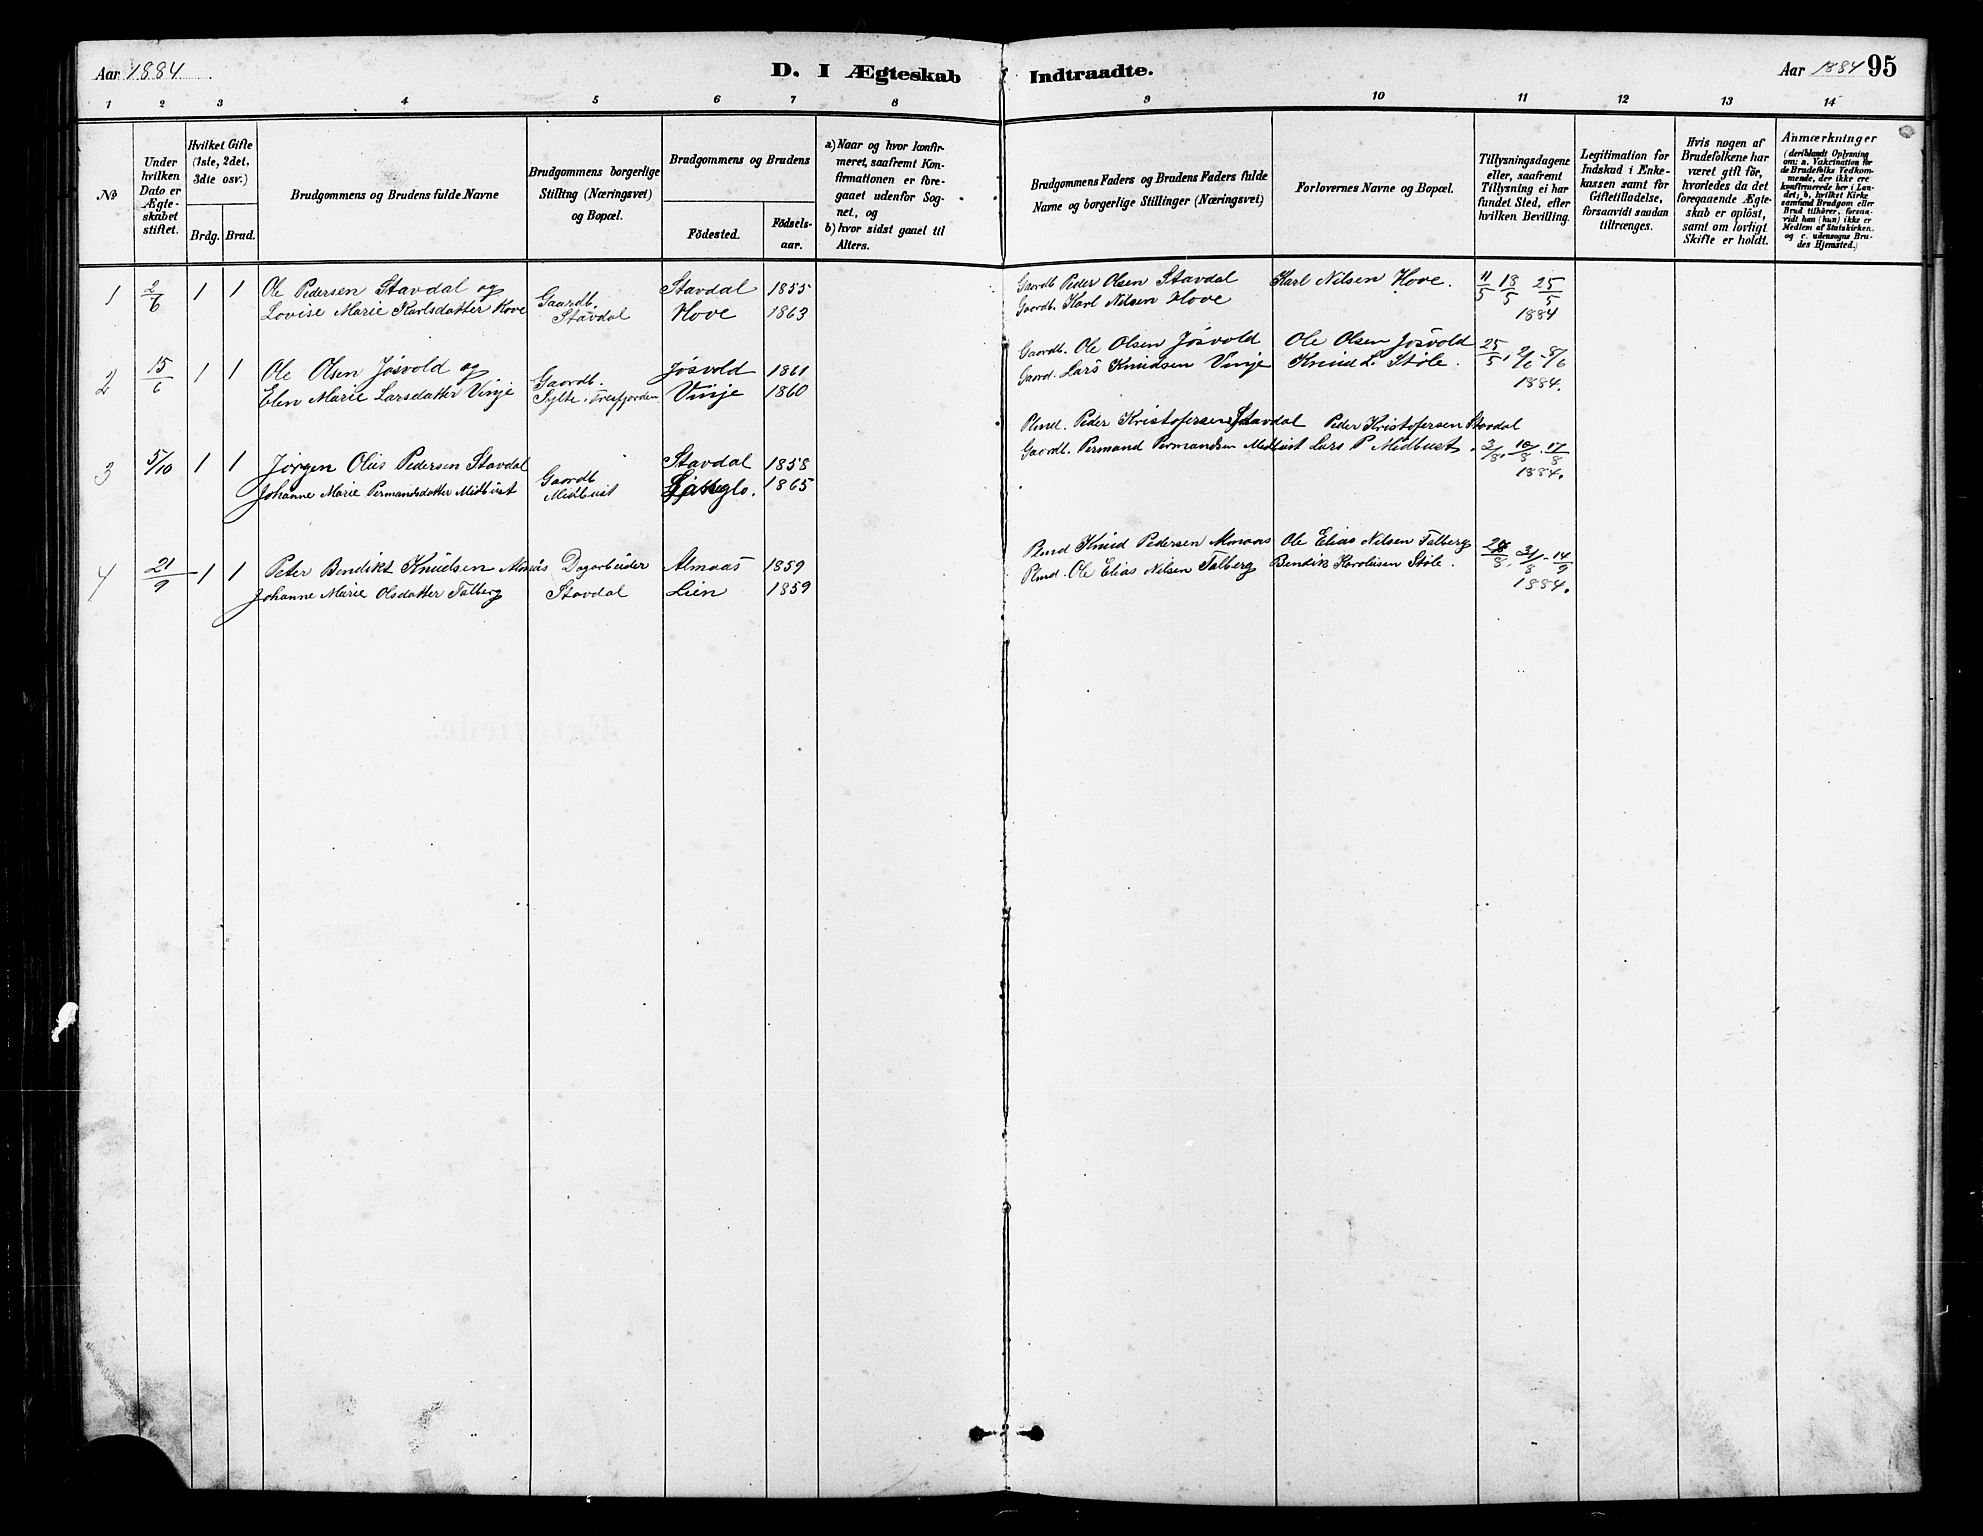 Aar 1884
D. I Ægteskab Indtraadte.
Aar 1884 95
1 2 3 4 5 6 7 8 9 10 11 12 13 14
№
Under hvilken Dato er Ægteskabet stiftet.
Hvilket Gifte (1ste, 2det, 3die osv.)
Brdg. Brud.
Brudgommens og Brudens fulde Navne
Brudgommens borgerlige Stilling (Næringsvei) og Bopæl.
Brudgommens og Brudens
Födested. Födselsaar.
a) Naar og hvor konfirmeret, saafremt Konfirmationen er foregaaet udenfor Sognet, og
b) hvor sidst gaaet til Alters.
Brudgommens Faders og Brudens Faders fulde Navne og borgerlige Stillinger (Næringsvei)
Forlovernes Navne og Bopæl.
Tillysningsdagene eller, saafremt Tillysning ei har fundet Sted, efter hvilken Bevilling.
Legitimation for Indskud i Enkekassen samt for Giftetilladelse, forsaavidt saadan tiltrænges.
Hvis nogen af Brudefolkene har været gift för, hvorledes da det foregaaende Ægteskab er oplöst, samt om lovligt Skifte er holdt.
Anmærkninger
(deriblandt Oplysning om: a. Vakcination for de Brudefolks Vedkommende, der ikke ere konfirmerede her i Landet; b. hvilket Kirkesamfund Brudgom eller Brud tilhörer, forsaavidt han (hun) ikke er Medlem af Statskirken. og c. udensogns Brudes Hjemsted.)
1 2/6 1 1 Ole Pedersen Stavdal og Gaardb. Stavdal 1855 Gaardb Peder Olsen Stavdal Karl Nilsen Hove. 11/5 18/5 25/5
Lovise Marie Karlsdatter Hove Stavdal Hove 1863 Gaardb. Karl Nilsen Hove 1884
2 15/6 1 1 Ole Olsen Jösvold og Gaardb. Jösvold 1861 Gaardb. Ole Olsen Jösvold Ole Olsen Jösvold 25/5, 2/6 - 8/6
Elen Marie Larsdatter Vinje Sylte i Tresfjorden Vinje 1860 Gaard. Lars Knudsen Vinje Knud L. Stöle. 1884.
3 5/10 1 1 Jörgen Olius Pedersen Stavdal Gaardb Stavdal 1858 Plmd. Peder Kristofersen Stavdal Peder Kristofersen Stavdal
Johanne Marie Permandsdatter Midbust Midbust 1865 Gaardb. Permand Permandsen Midbust Lars P Midbust. 3/8, 10/8. 17/8
1884.
4 21/9 1 1 Peter Bendikt Knudsen Almaas Dagarbeider Almaas 1859 Plmd Knud Pedersen Almaas Ole Elias Nilsen Talberg 31/8 - 14/9
Johanne Marie Olsdatter Talberg Stavdal Lien 1859 Plmd. Ole Elias Nilsen Talberg Bendik Karolusen Stöle. 1884.